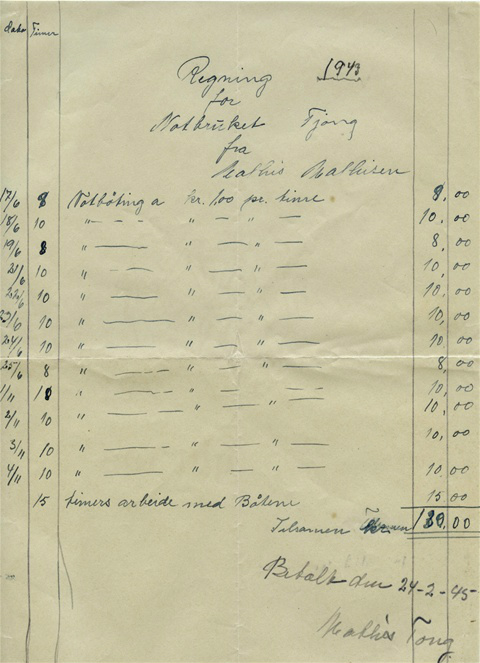 Dato Timer
Regning 1943
for
Notbruket Tjong
fra
Mathis Mathisen
17/6 8 Notbøting a kr. 1,00 pr. time 8,00
18/6 10 " — " — " — 10,00
19/6 8 " — " — " — 8,00
21/6 10 " — " — " — 10,00
22/6 10 " — " — " — 10,00
23/6 10 " — " — " — 10,00
24/6 10 " — " — " — 10,00
25/6 8 " — " — " — 8,00
1/11 10 " — " — " — 10,00
2/11 10 " — " — " — 10,00
10,00
3/11 10 " — " — " —
4/11 10 " — " — " — 10,00
15 timers arbeide med Båtene 15,00
Tilsamen kr. 130,00
Betalt den 24-2-45-
Mathis Tong